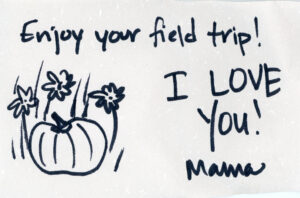 Enjoy your field trip!
I LOVE
You!
Mama